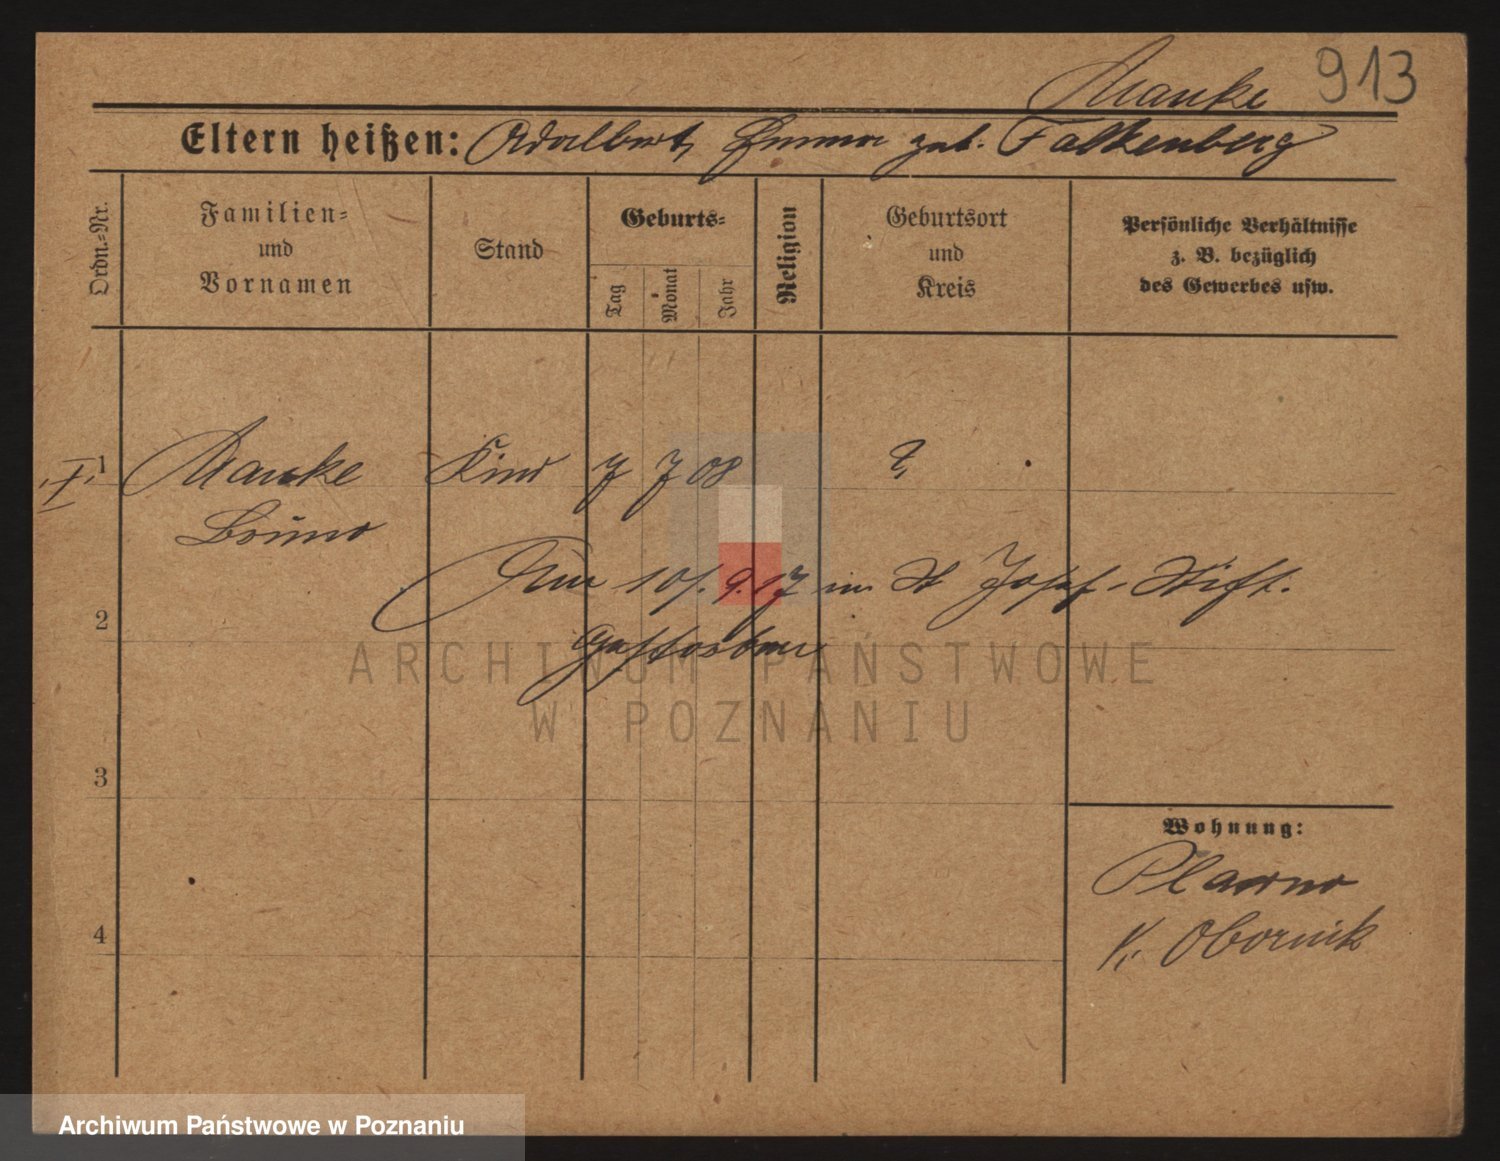 913
Manke
Eltern heißen: Adalbert, Emma geb. Falkenberg
Ordn.=Nr.
Familien=
und
Vornamen
Stand
Geburts=
Tag
Monat
Jahr
Religion
Geburtsort
und
Kreis
Persönliche Verhältnisse
z. B. bezüglich
des Gewerbes usw.
I. 1 Manke Kind 7 7 08 ?
Bruno
Am 10/.9.17 im St Josef-Stift.
2
gestorben
ARCHIWUM PAŃSTWOWE
W POZNANIU
3
Wohnung:
4
K. Obornik
Archiwum Państwowe w Poznaniu